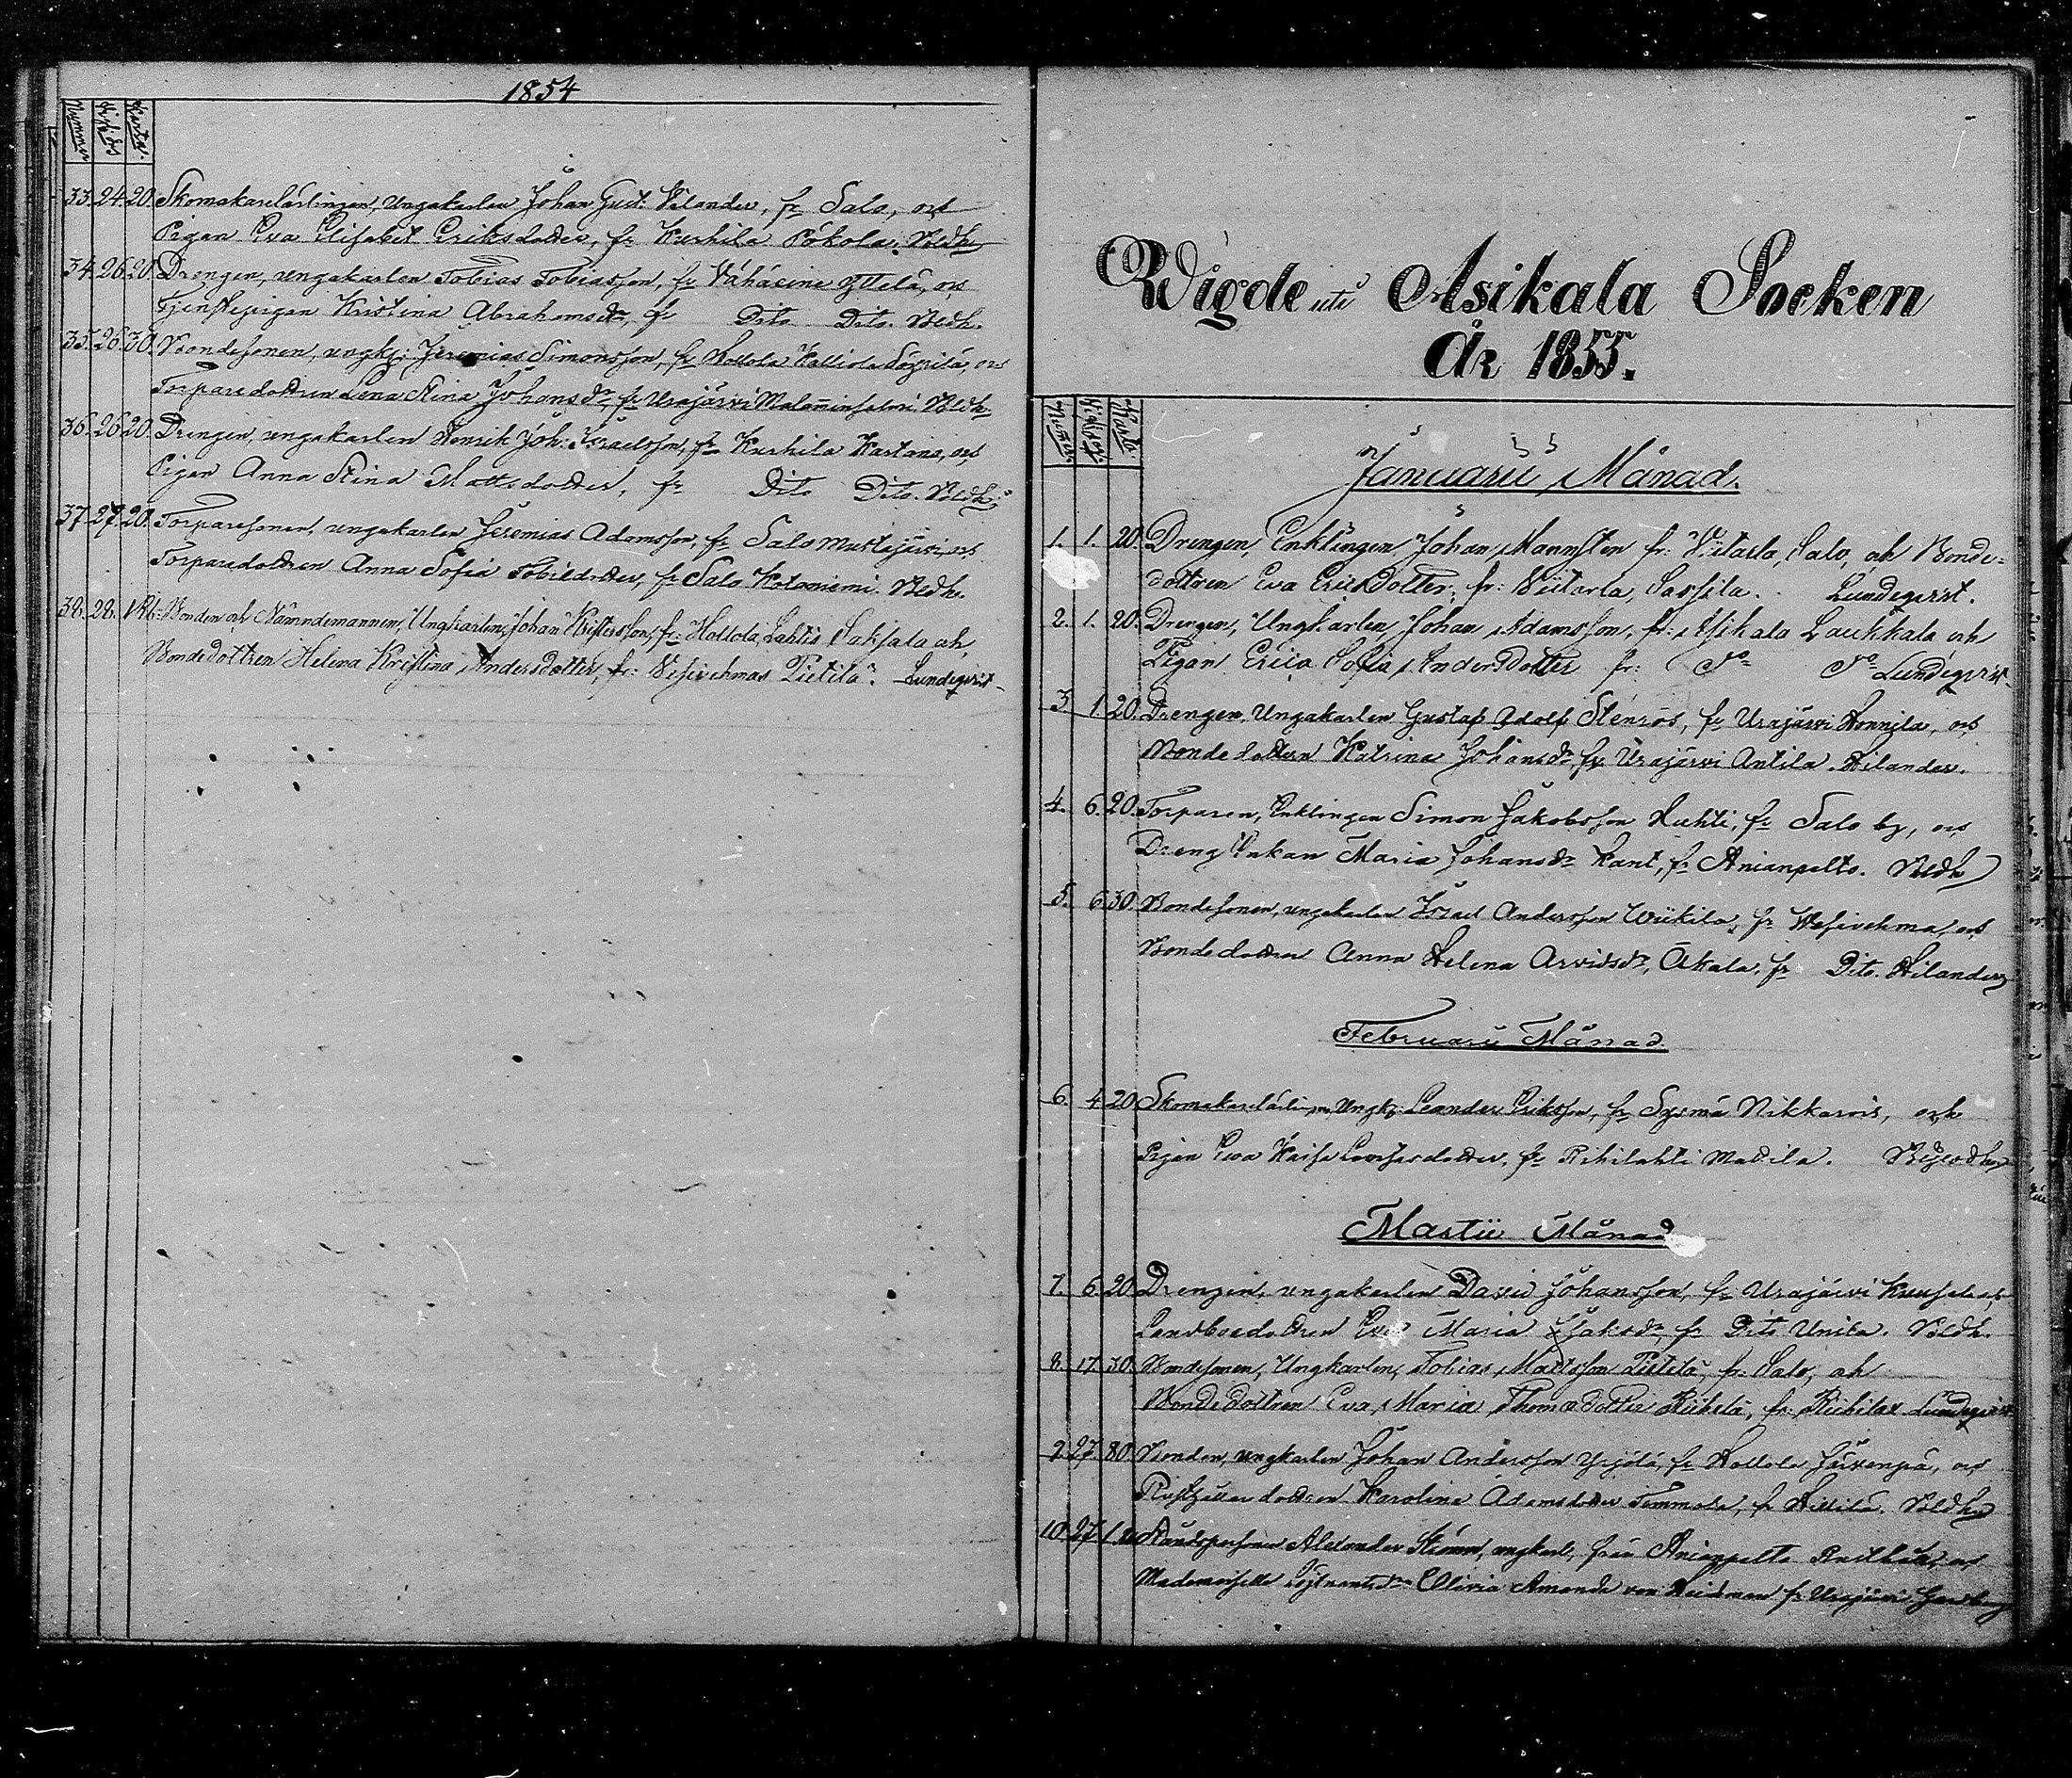 1854
Nummer
Vigdes
33. 24. 20. Skomakarelärlingen, Ungakarlen Johan Gust. Vilander, fr Salo, och
Pigan Eva Elisabet Eriksdotter, fr Kurhila Pökölä. Veldh
34. 26. 20. Drengen, ungakarlen Tobias Tobiasson, fr Vähäeine Yttelä, och
Tjenstepigan Kristina Abrahamsdr, fr Dito Dito. Veldh.
35. 26. 30. Bondesonen, ungk: Jeremias Simonsson, fr Hollola Kalliola och
Torparedottren Lena Stina Johansdr, fr Urajärvi Veldh
36. 26. 20. Drengen, ungakarlen Henrik Joh: Israelsson, fr Kurhila Kartano, och
Pigan Anna Stina Mattsdotter, fr Dito Dito. Veldh
37. 27. 20. Torparesonen, ungakarlen Jeremias Adamsson, fr Salo Mustajärvi, och
Torparedottren Anna Sofia fr Salo Kotoniemi. Veldh.
38. 28. 1 Rb. Bonden och Nämndemannen, Ungkarlen, Johan Kristersson, fr: Hollola, Lahtis och
Bondedottren Helena Kristina Andersdotter, fr: Vesivehmas Pietilä. Lundeqvist
Wigde uti Asikala Socken
År 1855.
Januarii Månad.
1. 1. 20. Drengen, Enklingen, Johan Mannsten fr: Viitaila, Salo, och Bonde-
dottren Eva EricsDotter, fr: Viitaila, Lundeqvist.
2. 1. 20. Drengen, Ungkarlen, Johan Adamsson, fr: Asikala Laukkala och
Pigan Erica Sofia AndersDotter fr: Do Do Lundeqvist
3. 1. 20. Drengen, Ungakarlen Gustaf Adolf Stenros, fr Urajärvi och
Bondedottren Katrina Johansdr, fr Urajärvi Antila. Hilander.
4. 6. 20. Torparen, Enklingen Simon Jakobsson Huhti, fr Salo by, och
Dreng Enkan Maria Johansdr Kant, fr Anianpelto. Veldh
5. 6. 30. Bondesonen, ungakarlen Israel Andersson Wiikilä, fr Wesivehma, och
Bondedottren Anna Helena Arvidsdr, fr Dito. Hilander
Februarii Månad.
6. 4. 20. Ungk: Leander Eriksson, fr Sysmä Nikkarois, och
Pigan Eva Kaisa fr Rihilahti Madila.
Martii Månad
7. 6. 20. Drengen, ungakarlen David Johansson, fr Urajärvi
Landboedottren Eva Maria fr Dito Unila. Veldh.
8. 17. 30. Bondesonen, Ungkarlen, Tobias Mattsson Pietilä, fr: Salo, och
Bondedottren Eva Maria ThomæDotter fr: Lundeqvist
9. 27. 80. Bonden, ungkarlen Johan Andersson Yrjölä, fr Hollola Järvenpä, och
Karolina Adamsdotter Tommola, fr Veldh
10. 27. Ståndspersonen Alexander Ström, ungkarl, från Anianpelto och
Mademoiselle Olivia Amanda von fr Urajärvi